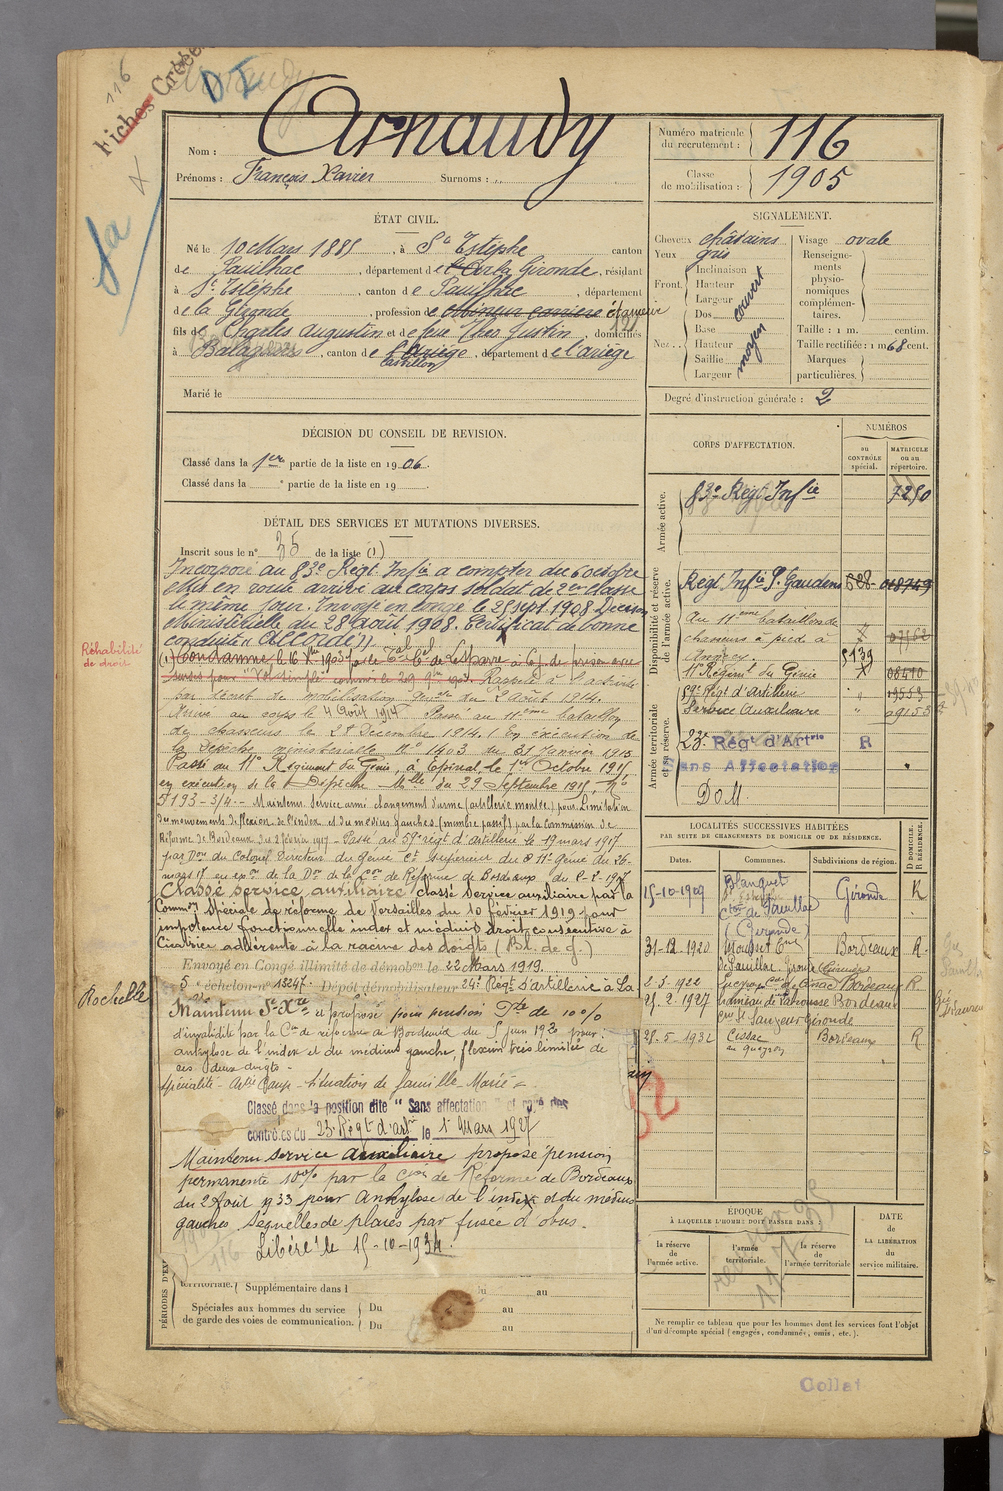 116
Fiches Créées
DI
Sa
Nom : Arnaudy
Prénoms : François Xavier Surnoms : „
Numéro matricule du recrutement : 116
Classe de mobilisation : 1905
ÉTAT CIVIL.
Né le 10 Mars 1885, à St Estèphe canton
de Pauilhac, département de la Gironde, résidant
à St Estèphe, canton de Pauilhac, département
de la Gironde, profession de
fils de Charles Augustin et de feue Théo Justin domiciliés
à Balaguères, canton de Castillon, département de l'ariège
Marié le
SIGNALEMENT.
Cheveux châtains
Yeux gris
Front. Inclinaison
Hauteur
Largeur
couvert
Nez . . Dos
Base
Hauteur
Saillie
Largeur
moyen
Visage ovale
Renseigne-
ments
physio-
nomiques
complémen-
taires.
Taille : 1 m. centim.
Taille rectifiée : 1 m 68 cent.
Marques
particulières.
Degré d'instruction générale : 2
DÉCISION DU CONSEIL DE REVISION.
Classé dans la 1ere partie de la liste en 1906.
Classé dans la e partie de la liste en 19
DÉTAIL DES SERVICES ET MUTATIONS DIVERSES.
Inscrit sous le n° 35 de la liste (1)
Incorporé au 83e Régt Infie a compter du 6 octobre
Mis en route arrivé au corps soldat de 2eme classe
le même jour. Envoyé en congé le 25 sept 1908 Décision
Ministérielle du 28 août 1908. Certificat de bonne
conduite « Accordé ».
Réhabilité
de droit
(1) Condamné le 16 Xbre 1903 par le Tal Cel de Lesparre à 6 j. de prison avec
sursis pour "Vol simple" commis le 20 9bre 1903. Rappelé à l'activité
par décret de mobilisation générale du 2 Août 1914.
Arrivé au corps le 4 Août 1914 Passé au 11eme bataillon
de chasseurs le 28 Décembre 1914. en exécution de
la Dépêche ministérielle N° 1403 du 31 Janvier 1915
Passé au 11e Régiment du Génie, à Epinal, le 1er Octobre 1915
en exécution de la Dépêche Mlle du 29 Septembre 1915, N°
5193-3/4. - Maintenu Service armé changement d'arme (artillerie montée) pour Limitation
des mouvements de flexion de l'index et du médius gauches (membre passif) par la commission de
Réforme de Bordeaux du 2 février 1917 - Passé au 59e régt d'artillerie le 19 mars 1917
par Don du Colonel Directeur du Génie Ct supérieur du 11e Génie du 16-
mars 17 en exon de la Don de la Con de Réforme de Bordeaux du 2-2-1917
Classé service auxiliaire classé service auxiliaire par la
Common Spéciale de réforme de Versailles du 10 février 1919 pour
impotence fonctionnelle index et médius droit, consécutive à
Cicatrice adhérente à la racine des doigts (Bl. de g.)
Envoyé en Congé illimité de démobon le 22 Mars 1919.
5e échelon-n° 15247. Dépôt démobilisateur 24e Régt d'artillerie à La
Rochelle
Maintenu Sce Xre et proposé pour pension Pte de 10%
d'invalidité par la Con de réforme de Bordeaux du 5 juin 1920 pour :
ankylose de l'index et du médius gauche, flexion très limitée de
ces deux doigts -
spécialité - Situation de famille Marié -
Classé dans la position dite " Sans affectation " et rayé des
contrôles du 23e Régt d'artie le 1er Mars 1927
Maintenu service auxiliaire proposé pension
permanente 10% par la Con de Réforme de Bordeaux
du 2 Août 1933 pour Ankylose de l'index et du médius
gauches. Séquelles de plaies par fusée d'obus.
Libéré le 15-10-1934.
PÉRIODES D'EX
territoriale. Supplémentaire dans l au
Spéciales aux hommes du service
de garde des voies de communication. Du au
Du au
CORPS D'AFFECTATION.
NUMÉROS
au
CONTRÔLE
spécial.
MATRICULE
ou au
répertoire.
Armée active.
83e Régt Infie 7290
Disponibilité et réserve
de l'armée active.
Régt Infie St Gaudens
Au 11eme bataillon de
chasseurs à pied à
Annecy
5139
11e Régiment du Génie X 08410
59e Régt d'artillerie „ 19553
Armée territoriale
et sa réserve.
Service Auxiliaire „
23e Régt d'Artrie R
Sans Affectation
DOM.
LOCALITÉS SUCCESSIVES HABITÉES
PAR SUITE DE CHANGEMENTS DE DOMICILE OU DE RÉSIDENCE.
Dates. Communes. Subdivisions de région. D DOMICILE. R RÉSIDENCE.
15-10-1909 Blanquet Cton de Pauillac (Gironde) Gironde R
31-12-1920 Bordeaux R
2-5-1922 Cissac Bordeaux R
25-2-1927 hameau de Larousse Cne St Sauveur Gironde Bordeaux
28-5-1932 Cissac Bordeaux R
ÉPOQUE
À LAQUELLE L'HOMME DOIT PASSER DANS :
la réserve
de
l'armée active.
l'armée
territoriale.
la réserve
de
l'armée territoriale
DATE
de
LA LIBÉRATION
du
service militaire.
Ne remplir ce tableau que pour les hommes dont les services font l'objet
d'un décompte spécial (engagés, condamnés, omis, etc.).
Collat